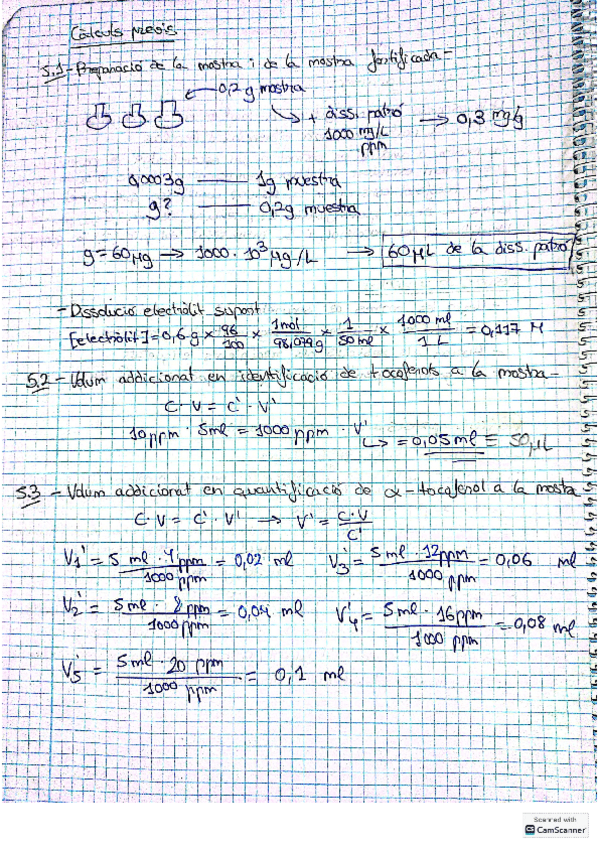 Càlculs previs
5.1 - Preparació de la mostra i de la mostra fortificada -
0,2 g mostra
+ diss. patró → 0,3 mg/g
1000 mg/L
ppm
0,0003g —— 1g muestra
g? —— 0,2g muestra
g = 60 μg → 1000 · 10³ μg/L → 60 μL de la diss. patró
- Dissolució electròlit suport
[electròlit] = 0,6 g × 96/100 × 1 mol/98,079 g × 1/50 ml × 1000 ml/1 L = 0,117 M
5.2 - Volum addicionat en identificació de tocoferols a la mostra -
C · V = C' · V'
10 ppm · 5 ml = 1000 ppm · V'
↳ = 0,05 ml = 50 μL
5.3 - Volum addicionat en quantificació de α-tocoferol a la mostra
C · V = C' · V' → V' = C·V/C'
V1' = 5 ml · 4 ppm/1000 ppm = 0,02 ml V3' = 5 ml · 12 ppm/1000 ppm = 0,06 ml
V2' = 5 ml · 8 ppm/1000 ppm = 0,04 ml V4' = 5 ml · 16 ppm/1000 ppm = 0,08 ml
V5' = 5 ml · 20 ppm/1000 ppm = 0,1 ml
Scanned with
CamScanner